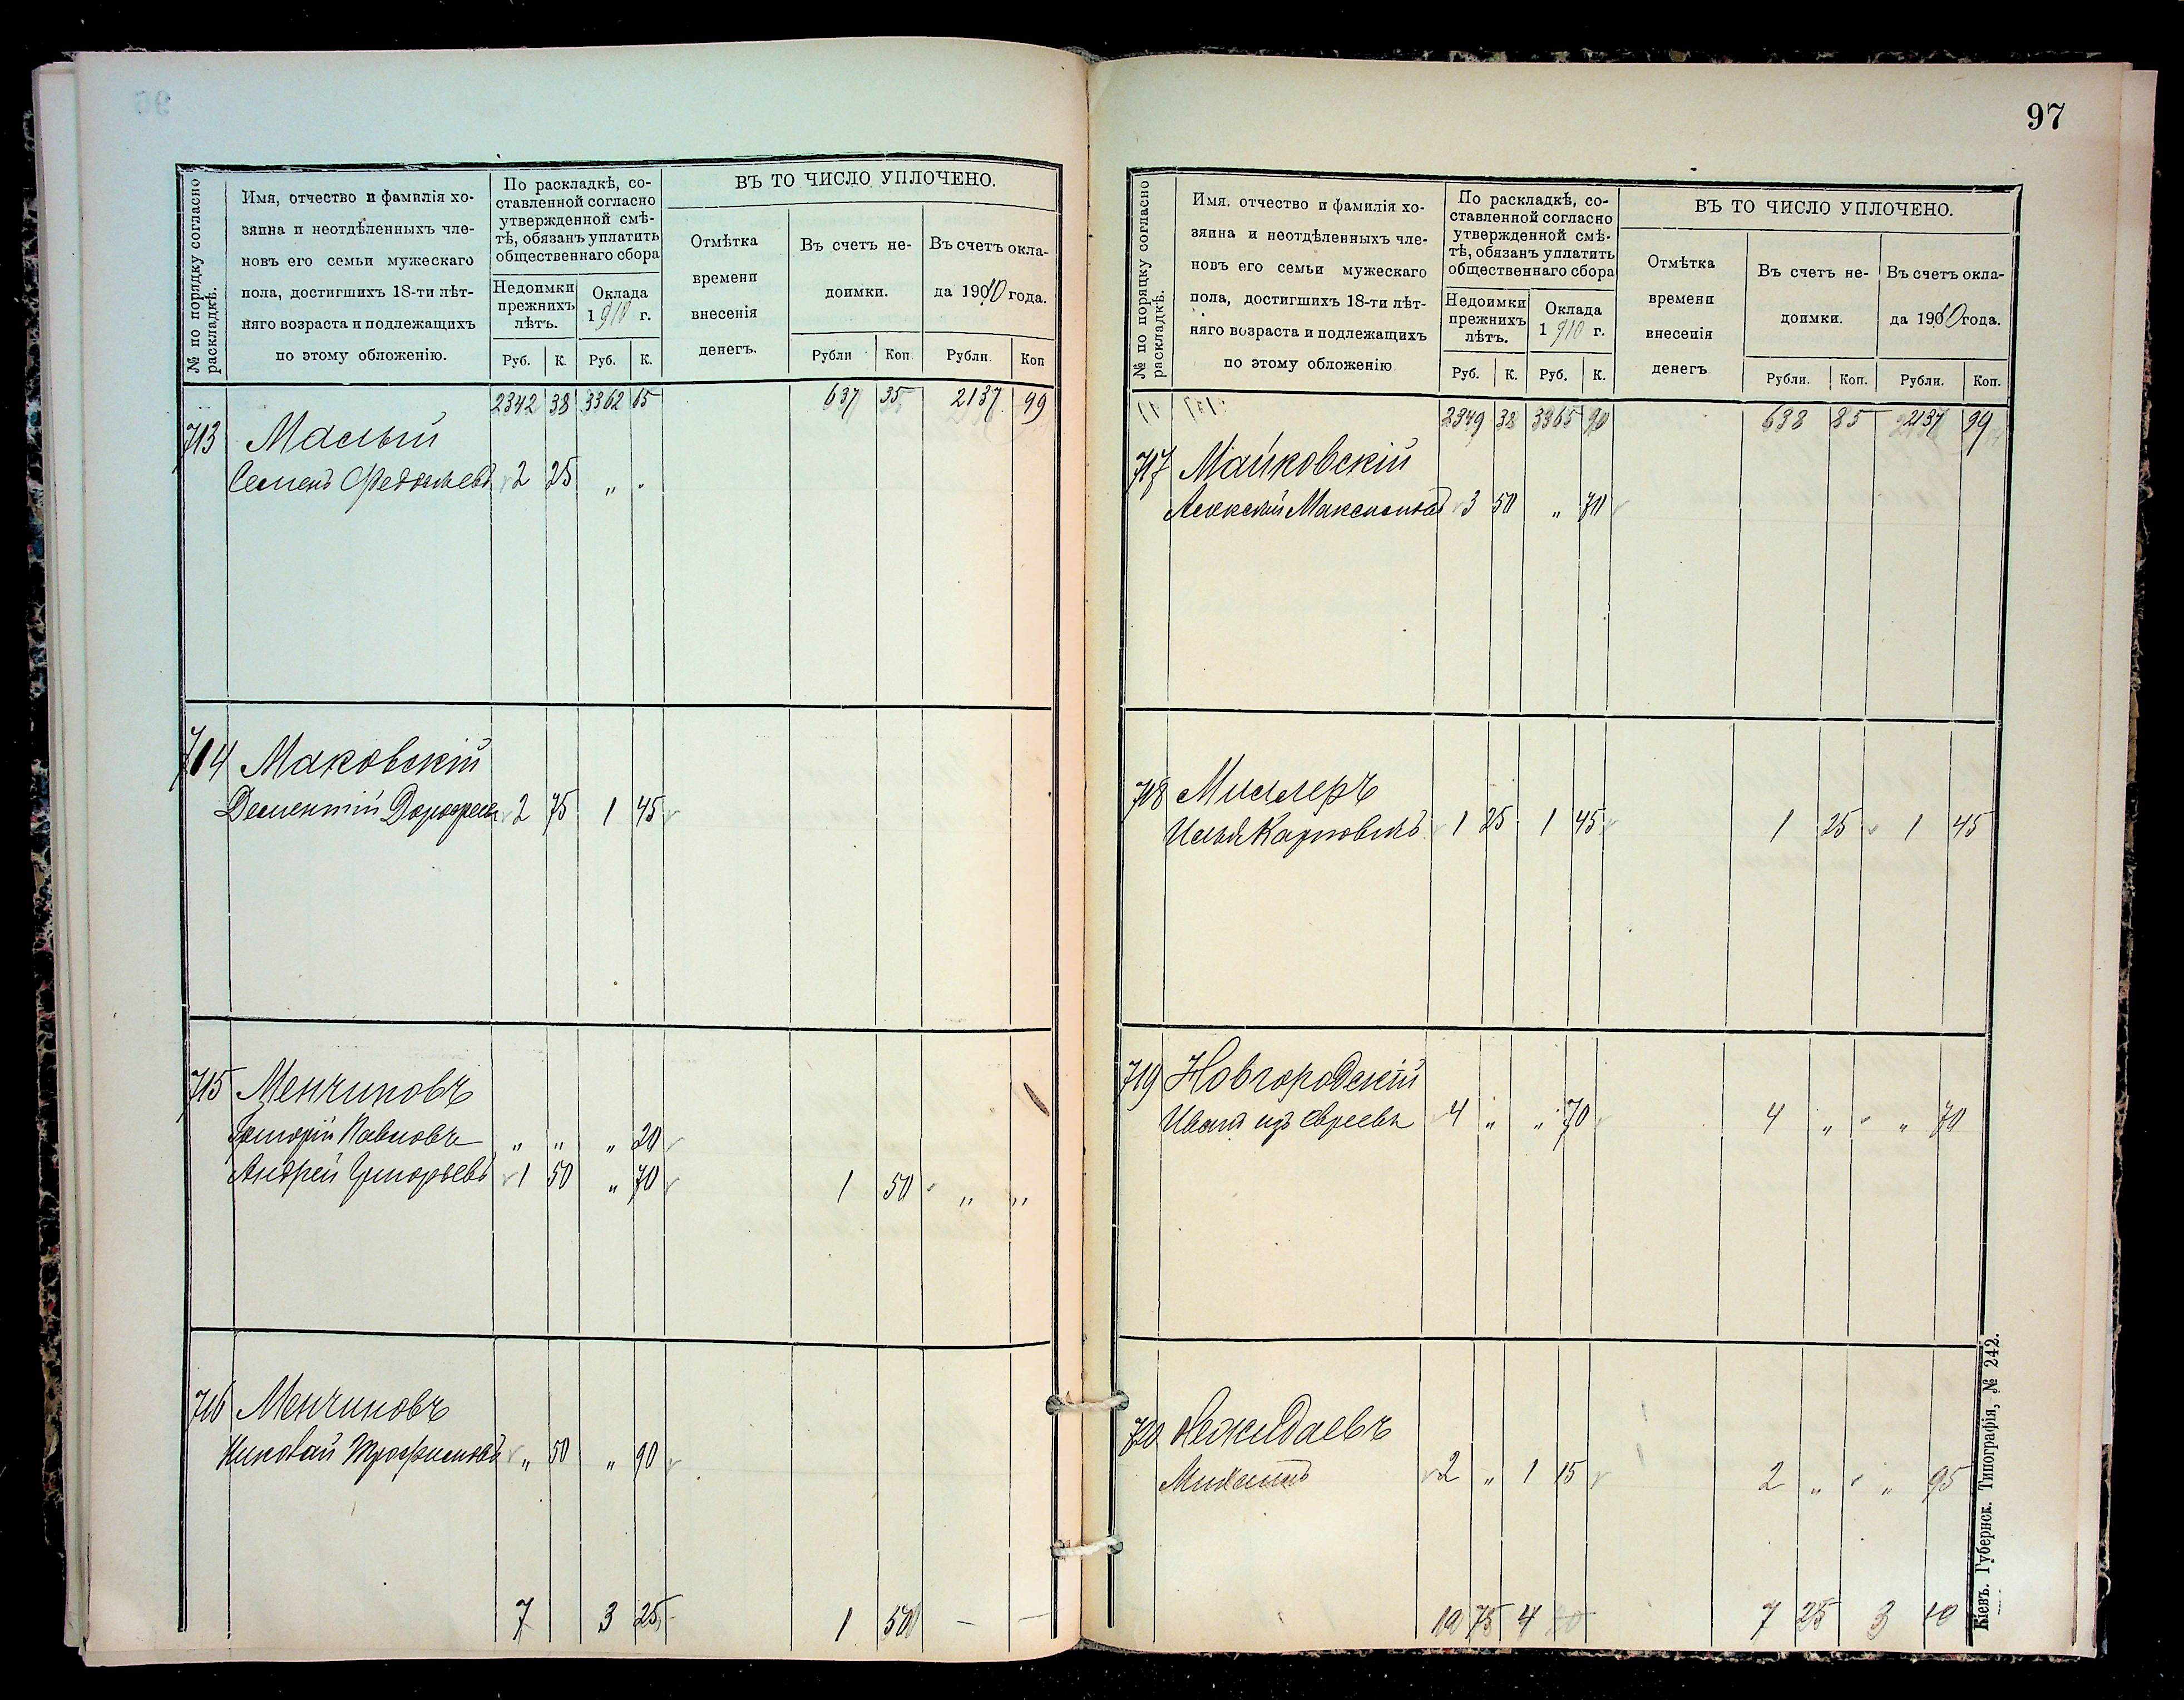 97
№ по порядку согласно раскладкѣ.
Имя, отчество и фамилія хо-
зяина и неотдѣленныхъ чле-
новъ его семьи мужескаго
пола, достигшихъ 18-ти лѣт-
няго возраста и подлежащихъ
по этому обложенію.
По раскладкѣ, со-
ставленной согласно
утвержденной смѣ-
тѣ, обязанъ уплатить
общественнаго сбора
Недоимки
прежнихъ
лѣтъ.
Оклада
1910 г.
Руб. К. Руб. К.
ВЪ ТО ЧИСЛО УПЛОЧЕНО.
Отмѣтка
времени
внесенія
денегъ.
Въ счетъ не-
доимки.
Въ счетъ окла-
да 1910 года.
Рубли Коп. Рубли. Коп
2342 38 3362 65 637 35 2137 99
713 Малый
Семенъ 2 25 „ „
714 Маковскій
Дементій 2 75 1 45
715 Менчиковъ
Григорій Павловъ „ „ „ 20
Андрей Григорьевъ 1 50 „ 70 1 50 „ „
716 Менчиковъ
Николай Трофимовъ „ 50 „ 90
7 3 25 1 50 — —
№ по порядку согласно раскладкѣ.
Имя, отчество и фамилія хо-
зяина и неотдѣленныхъ чле-
новъ его семьи мужескаго
пола, достигшихъ 18-ти лѣт-
няго возраста и подлежащихъ
по этому обложенію
По раскладкѣ, со-
ставленной согласно
утвержденной смѣ-
тѣ, обязанъ уплатить
общественнаго сбора
Недоимки
прежнихъ
лѣтъ.
Оклада
1910 г.
Руб. К. Руб. К.
ВЪ ТО ЧИСЛО УПЛОЧЕНО.
Отмѣтка
времени
внесенія
денегъ
Въ счетъ не-
доимки.
Въ счетъ окла-
да 1910 года.
Рубли. Коп. Рубли. Коп.
2349 38 3365 90 638 85 2137 99
717 Майковскій
Алексѣй Максимовъ 3 50 „ 70
718 Миллеръ
Илья Карповичъ 1 25 1 45 1 25 1 45
719 Новгородскій
Иванъ изъ евреевъ 4 „ „ 70 4 „ „ 70
720 Нежидаевъ
Михаилъ 2 „ 1 15 2 „ „ 95
10 75 4 7 25 3 10
Кіевъ. Губернск. Типографія, № 242.